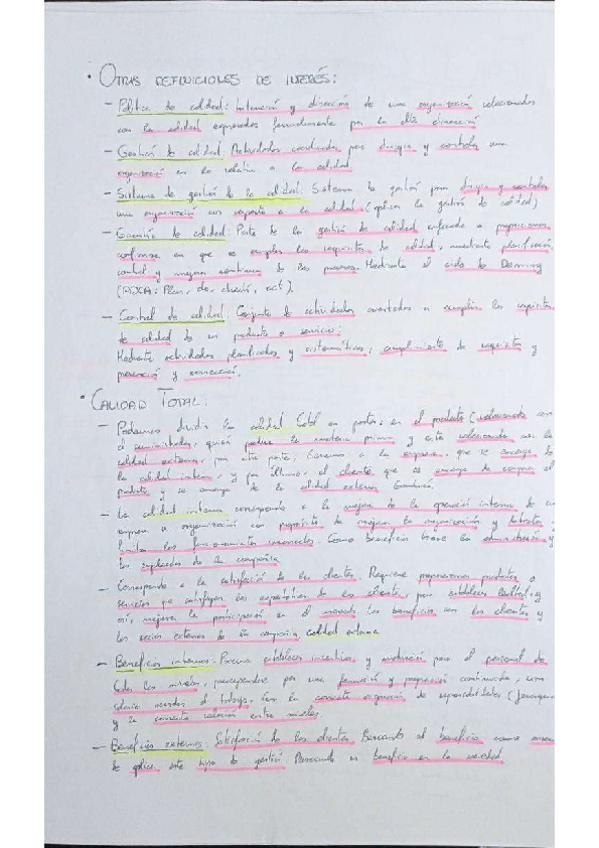 · OTRAS DEFINICIONES DE INTERÉS:
- Política de calidad: Intención y dirección de una organización relacionados
con la calidad expresados formalmente por la alta dirección
- Gestión de calidad: Actividades coordinadas para dirigir y controlar una
organización en lo relativo a la calidad
- Sistema de gestión de la calidad: Sistema de gestión para dirigir y controlar
una organización con respecto a la calidad (aplican la gestión de calidad)
- Garantía de calidad: Parte de la gestión de calidad enfocada a proporcionar
confianza en que se cumplen los requisitos de calidad, mediante planificación
control y mejora continua de los procesos. Mediante el ciclo de Deming
(PDCA: Plan, do, check, act).
- Control de calidad: Conjunto de actividades orientadas a cumplir los requisitos
de calidad de un producto o servicio:
Mediante actividades planificadas y sistemáticas, cumplimiento de requisitos y
prevención y corrección.
· CALIDAD TOTAL:
- Podemos dividir la calidad total en partes: en el producto (relacionado con
el suministrador, quien produce la materia prima y está relacionado con la
calidad externa, por otra parte, tenemos a la empresa, que se encarga de
la calidad interna, y por último, el cliente que se encarga de comprar el
producto y se encarga de la calidad externa también.
- La calidad interna corresponde a la mejora de la operación interna de una
empresa u organización con propósito de mejorar la organización y
limitar los funcionamientos incorrectos. Como beneficio tiene la administración y
los empleados de la compañía
- Corresponde a la satisfacción de los clientes. Requiere proporcionar productos o
servicios que satisfagan las expectativas de los clientes, para establecer lealtad y
así, mejorar la participación en el mercado. Los beneficios son los clientes y
los socios externos de la compañía calidad externa
- Beneficios internos: Procura establecer incentivos y motivación para el personal de
todos los niveles, por una formación y progresión continuada, con
salario acordes al trabajo, con la correcta asignación de responsabilidades (jerarquía)
y la correcta relación entre niveles.
- Beneficios externos: Satisfacción de los clientes. Buscando el beneficio como
se aplica este tipo de gestión. Buscando un beneficio en la sociedad